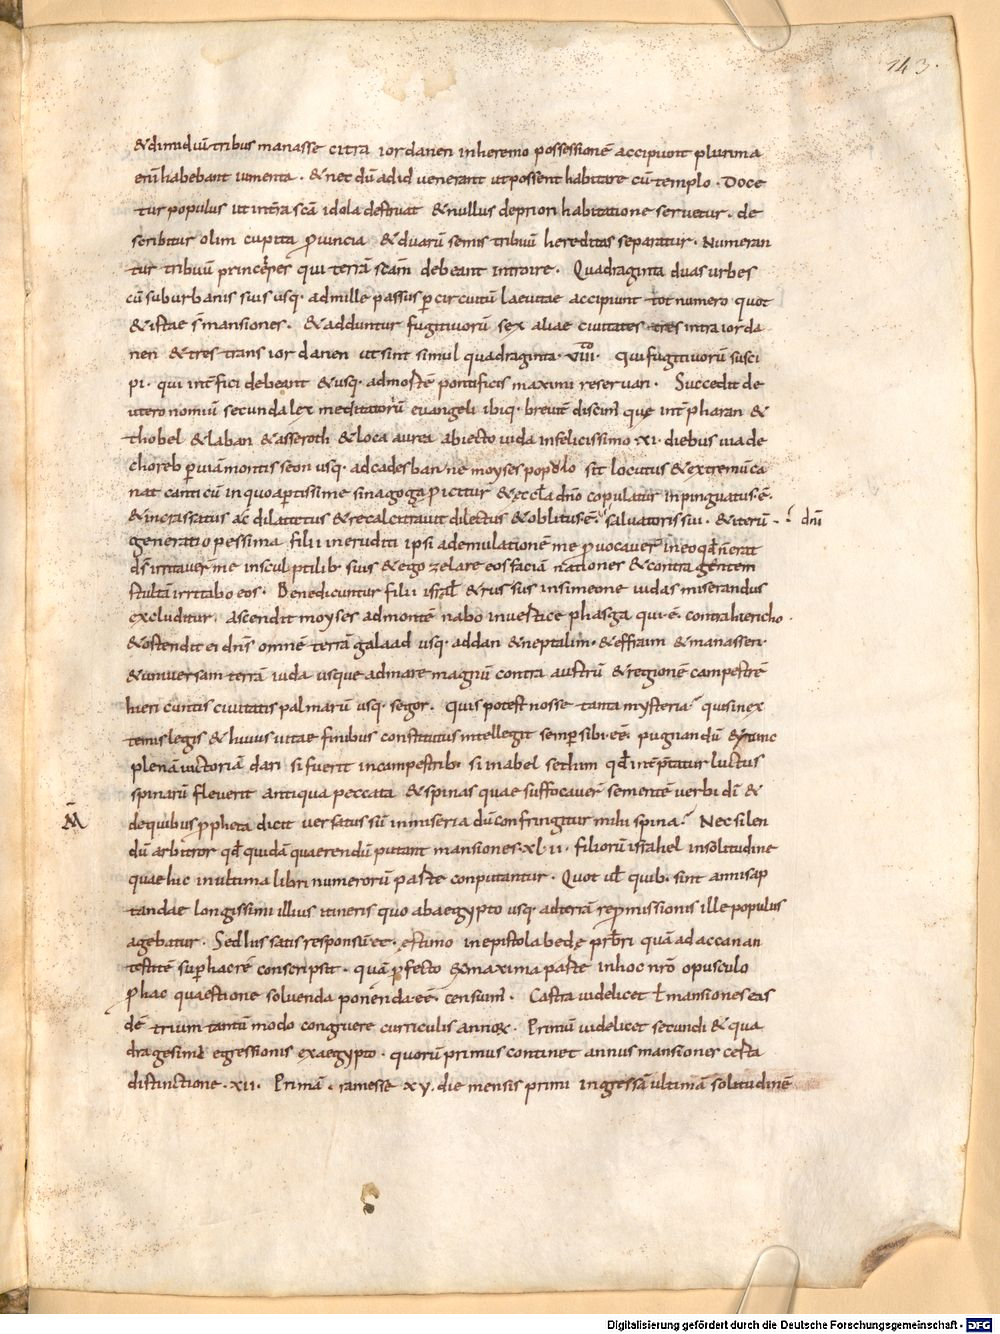 143.
&dimidiū tribus manasse citra iordanen inheremo possessionē accipiunt plurima
enī habebant iumenta. &nec dū adid venerant utpossent habitare cū templo. Doce
tur populus ut intra scā idola destruat &nullus depriori habitatione seruetur. de
scribitur olim cupita ꝓuincia &duarū semis tribuū hereditas separatur. Numeran
tur tribuū principes qui terrā scām debeant introire. Quadraginta duas urbes
cū suburbanis suis usq· admille passus ꝑ circuitū laeuitae accipiunt tot numero quot
&istae s̄ mansiones. &adduntur fugitiuorū sex aliae ciuitates tres intra iorda
nen &tres trans iordanen ut sint simul quadraginta. viii. Qui fugitiuorū susci
pi. qui int̄fici debeant &usq· admortē pontificis maximi reseruari. Succedit de
utero nomiū secunda lex meditatorū euangeli ibiq· breuit̄ discurrit que int̄ pharan &
thobel &laban &asseroth &loca aurea abiecto iuda infelicissimo xi. diebus uia de
choreb ꝑ uiā montis seon usq· adcades barne moyses populo sit locutus &extremū ca
nat canticū inquo aptissime sinagoga ꝓicitur &eccl̄a dn̄o copulatur inpinguatus ē.
&incrassatus ac dilatatus &recalcitrauit dilectus &oblitus ē. saluatoris sui. &iterū. dn̄i
generatio pessima filii ineruditi ipsi ademulationē me ꝓuocauer̄ ineo qđ n̄ erat
d̄s irritauer̄ me insculptilib· suis &ego zelare eos faciā nationes &contra gentem
stultā irritabo eos. Benedicuntur filii isrl̄ &rursus insimeone iudas miserandus
excluditur. ascendit moyses admontē nabo inuestice phasga qui ē. contra hiericho.
&ostendit ei dn̄s omnē terrā galaad usq· addan &neptalim. &effraim &manassen.
&uniuersam terrā iuda usque admare magnū contra austrū &regionē campestrē
hiericuntis ciuitatis palmarū usq· segor. quis potest nosse tanta mysteria? quis inex
temis legis &huius uitae finibus constitutus intellegit semp̄ sibi eē. pugnandū &tunc
plenā uictoriā dari si fuerit incampestrib· si inabel sethim qđ int̄p̄tatur luctus
spinarū fleuerit antiqua peccata &spinas quae suffocauer̄ sementē uerbi dī &
dequibus ꝓpheta dicit uersatus sū inmiseria dū confringitur mihi spina? Nec silen
dū arbitror qđ quidā quaerendū putant mansiones. xl ii. filiorū israhel insolitudine
quae hic inultima libri numerorū parte conputantur. Quot ul̄ quib· sint annis ap
tandae longissimi illius itineris quo abaegypto usq· adterrā reꝓmissionis ille populus
agebatur. Sed lus satis responsū eē. estimo inepistola bede p̄rb̄ri quā adaccanan
testitē sup̄ hac rē conscripsit. quā ꝓfecto &maxima parte inhoc nr̄o opusculo
ꝓ hac quaestione soluenda ponenda eē. censuimꝰ. Castra uidelicet t̄ mansiones eas
dē trium tantū modo congruere curriculis annorꝝ. Primū uidelicet secundi &qua
dragesimi egressionis exaegypto. quorū primus continet annus mansiones certa
distinctione. xii. Primā. ramesse xv. die mensis primi ingressā ultimā solitudinē
Digitalisierung gefördert durch die Deutsche Forschungsgemeinschaft - DFG